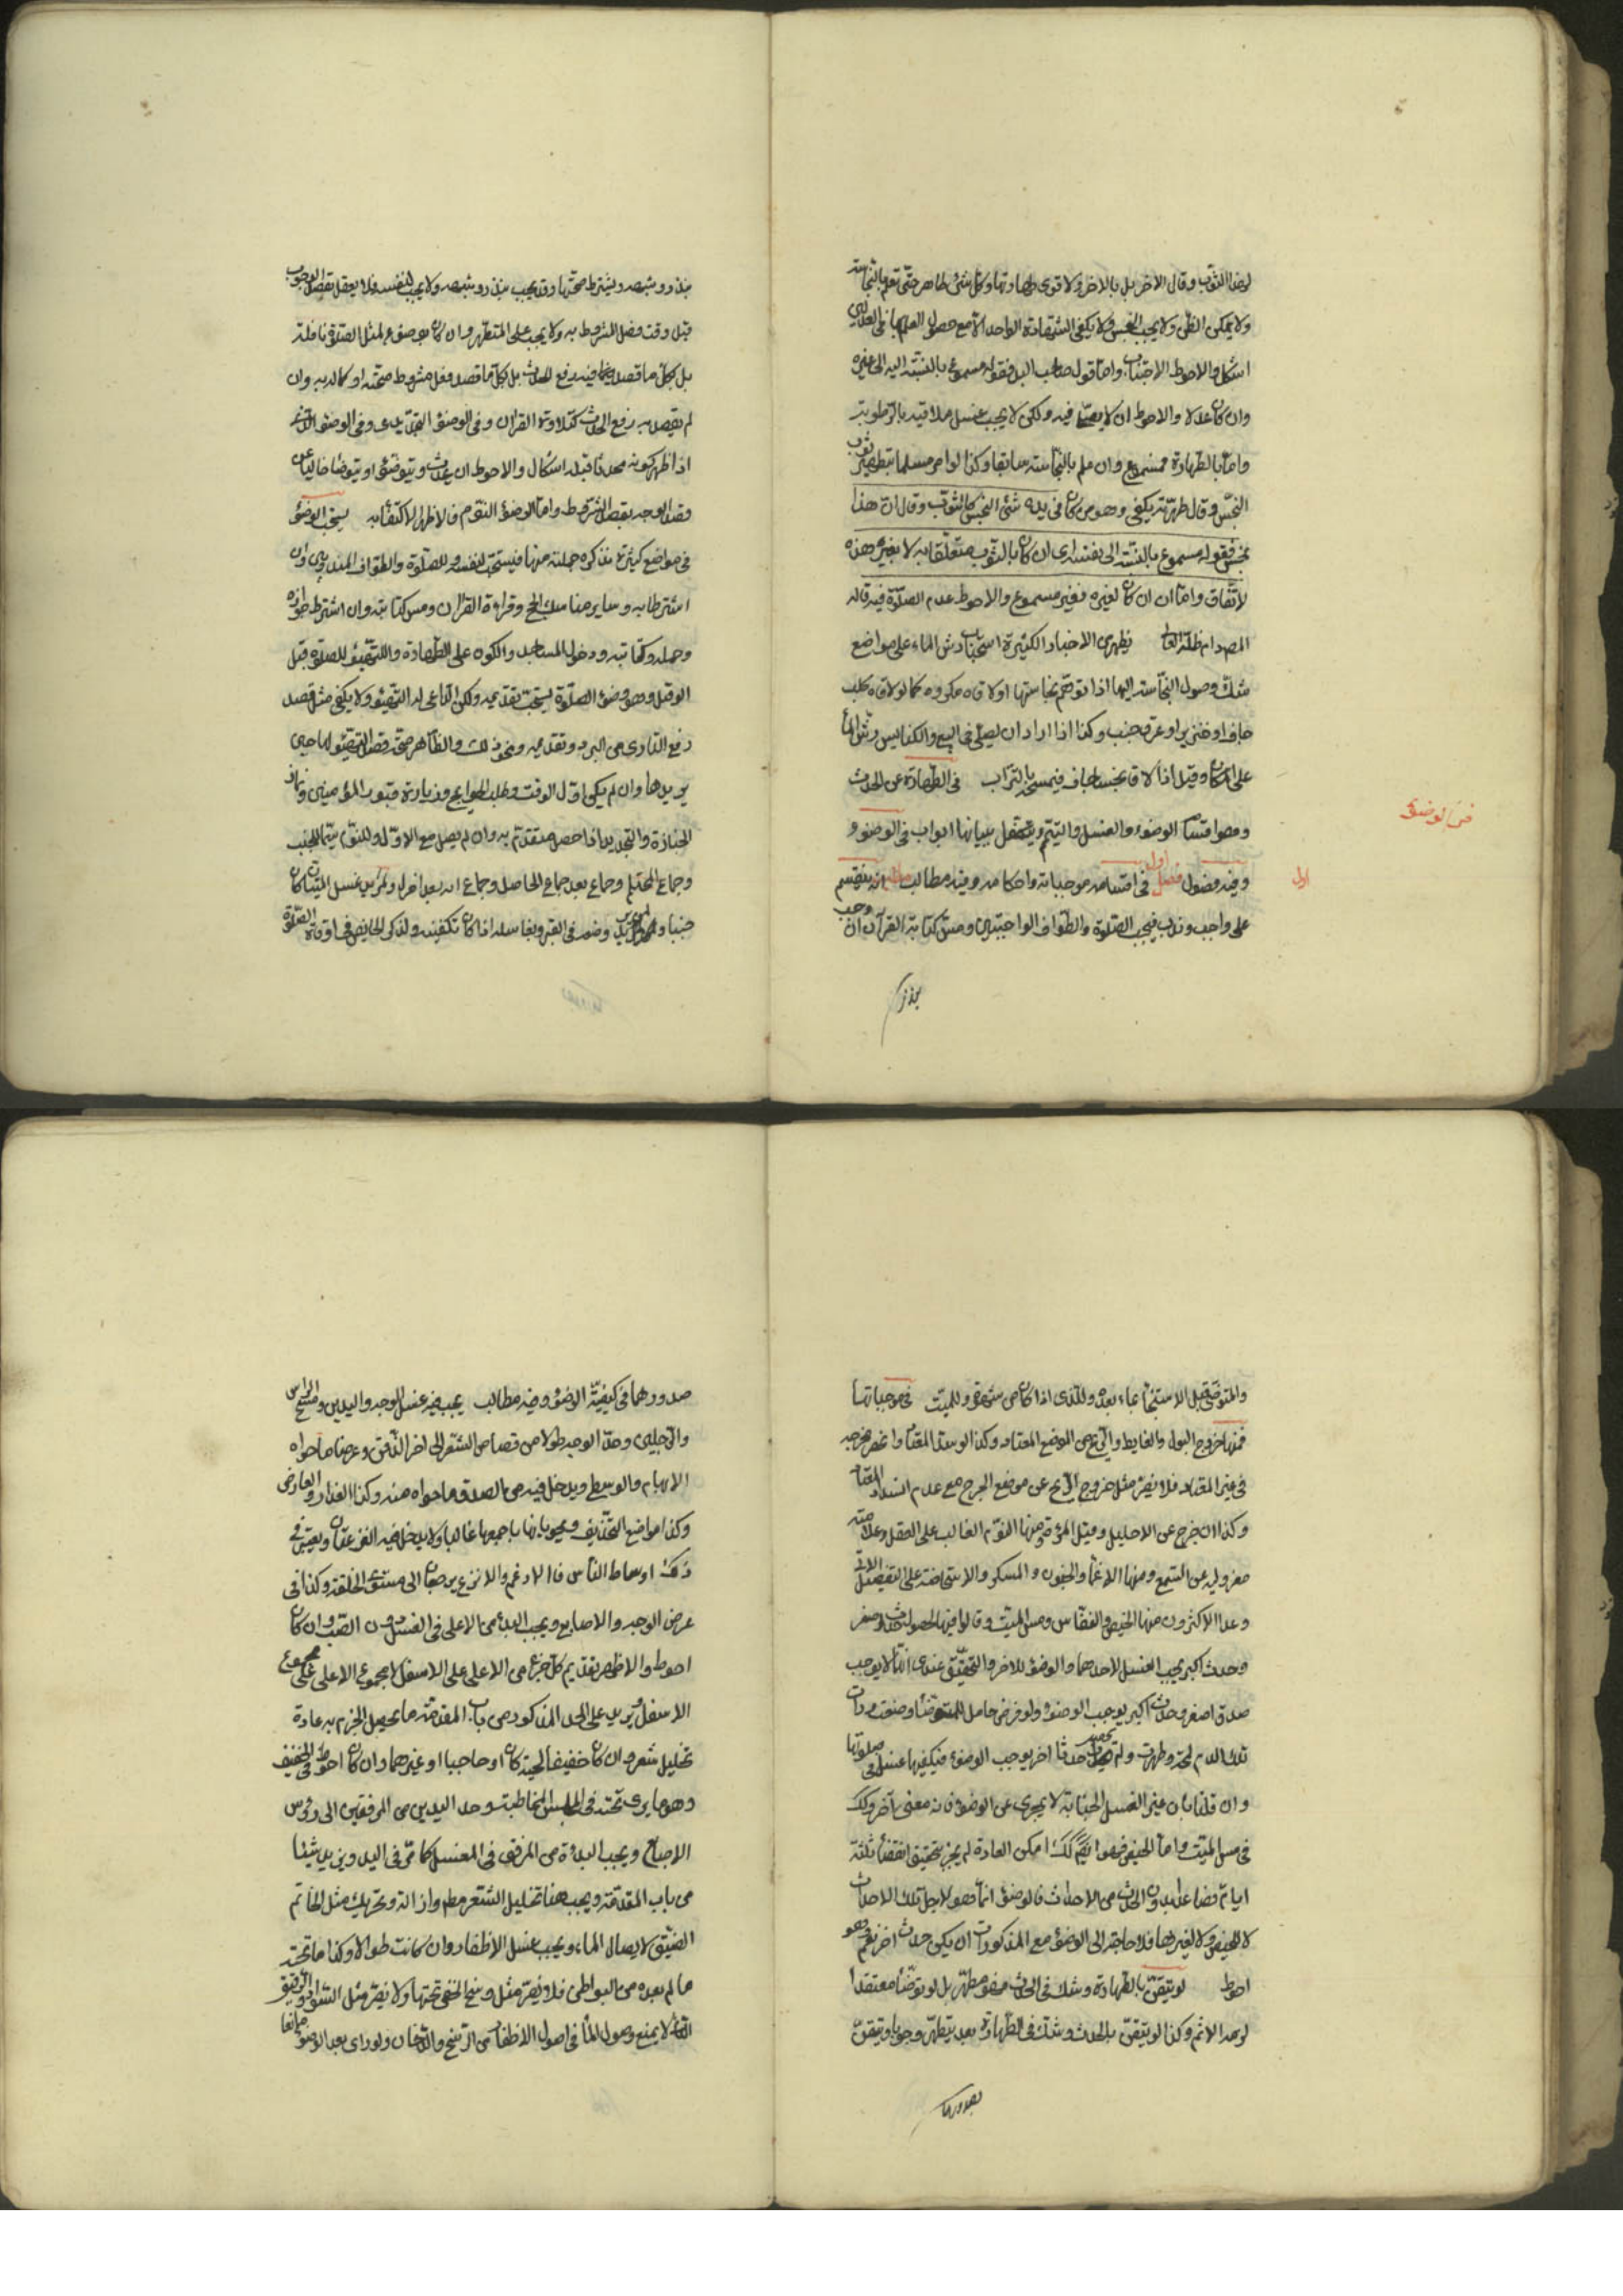 لهذا الثوب وقال الاخر بل بالاخر فالاقوى طهارتها وكل شئ طاهر حتى تعلم بالنجاسة
ولا يكفى الظن ولا يجب الفحص ولا يكفى الشهادة الواحد الا مع حصول العلم بها فى العدلين
اشكال والاحوط الاجتناب واما قول صاحب اليد فقوله مسموع بالنسبة اليه الى غيره
وان كان عدلا والاحوط ان لا يصلى فيه ولكن لا يجب غسل ملاقيه بالرطوبة
واما بالطهارة فمسموع وان علم بالنجاسة سابقا وكذا لو امر مسلما بتطهير ثوب
النجس وقال طهرته يكفى وهو من كان فى يده شئ النجس كالثوب وقال ان هذا
نجس فقوله مسموع بالنسبة الى نفسه اى ان كان بالثوب متعلقا به لا بغيره هذه
لاتفاق واما ان كان لغيره فغير مسموع والاحوط عدم الصلوة فيه قاله
يظهر من الاخبار الكثيرة استحباب رش الماء على مواضع
شك وصول النجاسة اليها اذا توهم نجاستها او لاقاه مكروه كما لو لاقاه كلب
جاف او خنزير او عرق جنب وكذا اذا اراد ان يصلى فى البيع والكنايس ورش الماء
على المكان وقيل اذا لاقى نجسا جاف فيمسحه بالتراب فى الطهارة عن الحدث
فى الوضوء
وهو اقسام الوضوء والغسل والتيمم ويتحصل بيانها ابواب فى الوضوء و
وفيه فصول فصل اول فى اقسامه وموجباته واحكامه وفيه مطالب انه ينقسم
اول
على واجب وندب فيجب الصلوة والطواف الواجبتين ومس كتابة القرآن ان وجب
بنذر
بنذر وشبهه ويشترط صحتها وقد يجب بنذر وشبهه ولا يجب لنفسه فلا يعقل بقصد الوجوب
قبل وقت فعل المشروط به ولا يجب على المتطهر وان كان بوضوء لمثل الصلوة نافلة
بل بكل ما قصد فيه رفع الحدث بل بكل ما قصد فعل مشروط صحته او كماله به وان
لم يقصد به رفع الحدث كتلاوة القران وفى الوضوء التجديدى وفى الوضوء
اذا ظهر كونه محدثا قبله اشكال والاحوط ان يحدث ويتوضؤ او يتوضا خاليا عن
قصد الوجه بقصد الشرط واما الوضوء النوم فالاظهر الاكتفاء به يستحب الوضوء
فى مواضع كثيرة نذكره جملة منها فيستحب لنفسه وللصلوة والطواف المندوبين وان
اشترطا به وساير مناسك الحج وقراءة القرآن ومس كتابته وان اشترط جوازه
وحمله وكتابته ودخول المساجد والكون على الطهارة والتهيئو للصلوة قبل
الوقت وهو وضوء الصلوة يستحب تقديمه ولكن الداعى له التهيئو ولا يكفى مثل قصد
رفع التاذى من البرد وتقديمه ونحو ذلك والظاهر صحة وقصد التهيئو لما حين
يريدها وان لم يكن اول الوقت وطلب الحوايج وزيارة قبور المؤمنين
الجنازة والتجديد اذا حصل متقدم به وان لم يصل مع الاول وللنوم سيما للجنب
وجماع المحتلم وجماع بعد جماع الحامل وجماع امه بعد اخرى ولمريد غسل الميت ان كان
جنبا ولمن يريد وضعه فى القبر وبغاسله اذا كان تكفينه ولذكر الحايض فى اوقات الصلوة
والمتوضئ قبل الاستنجاء بماء بعده وللمذى اذا كان من شهوة وللميت فى موجباتها
فمنها خروج البول والغايط والريح من الموضع المعتاد وكذا لو سد المعتاد وانحصر مخرجه
فى غير المعتاد فلا يضر مثل خروج الريح عن موضع الجرح مع عدم انسداد المعتاد
وكذا ان خرج عن الاحليل وقيل المرءة ومنها النوم الغالب على العقل وعلامته
مغلوليه عن السمع ومنها الاغماء والجنون والمسكر والاستحاضة على التفصيل الاتى
وعدا الاكثرون منها الحيض والنفاس ومس الميت وقالوا فيها لحصول حدث اصغر
وحدث اكبر يجب الغسل لاحدهما والوضوء للاخر والتحقيق عندى انها لا يوجب
حدث اصغر وحدث اكبر يوجب الوضوء ولو فرض حامل للتوضئا وضوءت ورات
تلك الدم لمحة وطهرت ولم تحدث بعده حدثا اخر يوجب الوضوء فيكفيها غسل فى صلوتها
وان قلنا بان غير الغسل الجنابة لا يجزى عن الوضوء فانه معنى آخر وكك
فى مس الميت واما الحيض فهو ايضا كك امكن العادة لم يجز بتحقيق انقضاء ثلثة
ايام فصاعدا بدون الحدث من الاحداث فالوضوء انما هو لاجل تلك الاحداث
لا للحيض ولا لغيرها فلا حاجة الى الوضوء مع المذكورات ان يكن حدث اخر نعم هو
احوط لو تيقن بالطهارة وشك فى الحدث فهو مطهر بل لو توضا معتقدا
لوجد الاثم وكذا لو تيقن بالحدث وشك فى الطهارة بعده يتطهر وجوبا وتيقن
بصدورهما
صدورهما فى كيفية الوضوء وفيه مطالب يجب فيه غسل الوجه واليدين ومسح الراس
والرجلين وحد الوجه طولا من قصاص الشعر الى اخر الذقن وعرضا ما حواه
الابهام والوسطى ويدخل فيه من الصدق ما حواه منه وكذا العذار والعارض
وكذا مواضع التحذيف وجوبا بها باجمعها غالبا ولا يدخل فيه النزعتان ويعتبر فى
ذلك اوساط الناس فالادغم والانزع يرجعان الى مستوى الخلقة وكذا فى
عرض الوجه والاصابع ويجب البدء من الاعلى فى الغسل دون الصب وان كان
احوط والاظهر تقديم كل جزء من الاعلى على الاسفل لا مجموع الاعلى على مجموع
الاسفل ويزيد على الحد المذكور من باب المقدمة ما يحصل الجزم به عادة
تخليل شعر وان كان خفيفا لحية كان او حاجبا او غيرهما وان كان احوط فى الخفيف
وهو ما يرى تحته فى المجلس المخاطبة وحد اليدين من المرفقين الى رؤس
الاصابع ويجب البداة من المرفق فى الغسل كما مر فى اليد ويزيد شيئا
من باب المقدمة ويجب هنا تخليل الشعر مطم وازالة وتحريك مثل الخاتم
الضيق لايصال الماء ويجب غسل الاظفار وان كانت طوالا وكذا ما تحته
ما لم يعد من البواطن فلا يضر مثل وسخ الخفى تحتها ولا يضر مثل السواد الرقيق
لا يمنع وصول الماء فى اصول الاظفار من الوسخ والدخان ولو راى بعد الوضوء مانعا